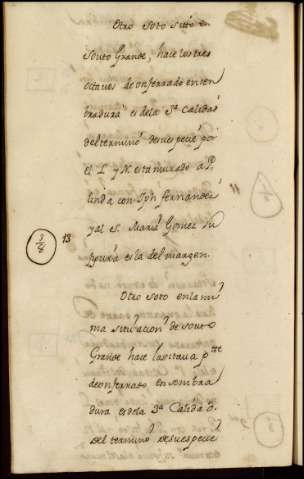 Otro soto sitto en
Souto Grande, hace los tres
octavos de on ferrado en sen
bradura es de la 3ª Calidad
del termino de su especie por
el L. y N. esta murado a P.
linda con Jph fernandez
y al S. Maria Gomez su
figura es la del margen.
3/8
13
Otro soto en la mis
ma situacion de souto
Grande hace la octava ptte
de on ferrado en sembra
dura es de la 3ª Calidad
del termino de su especie